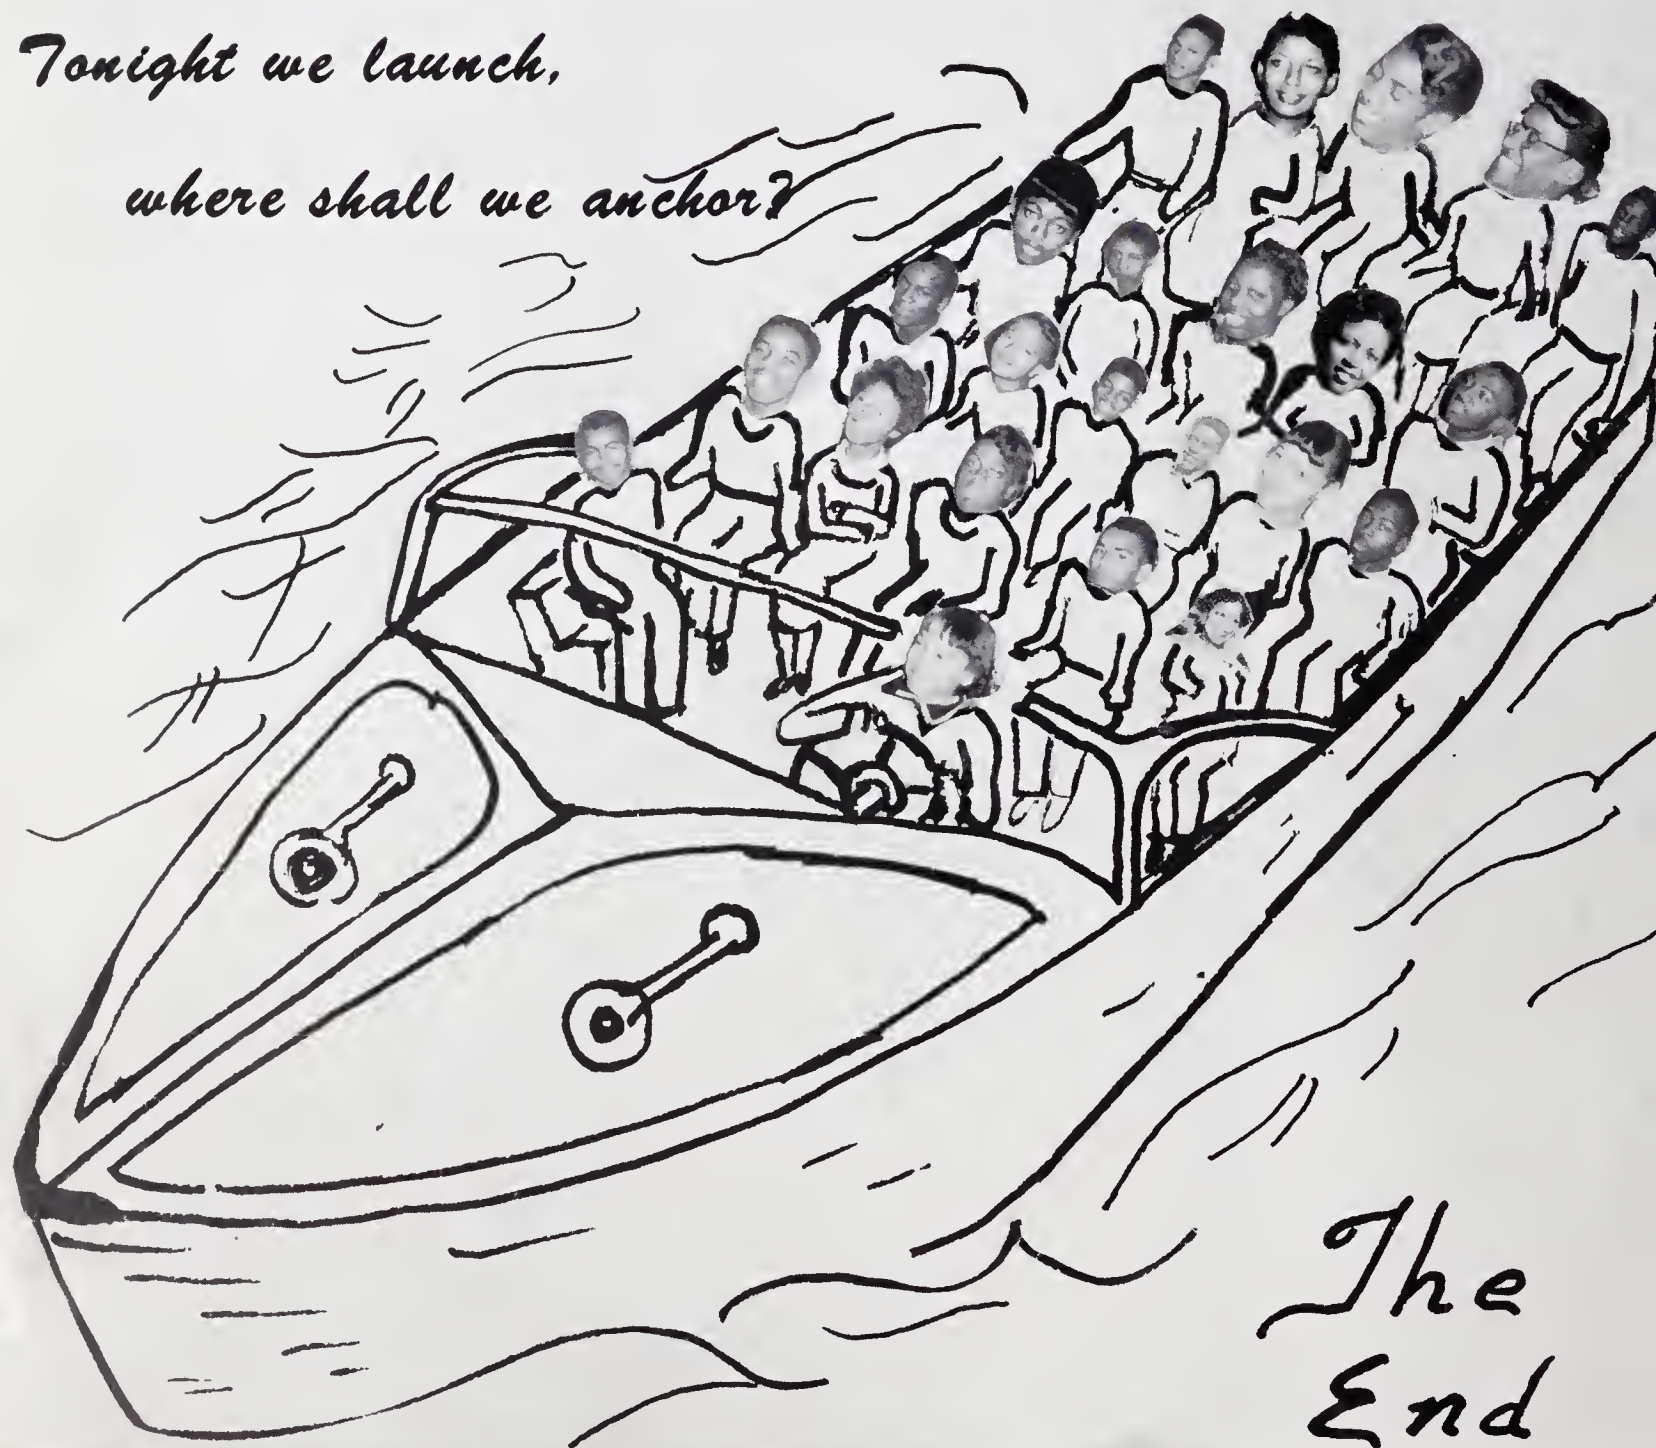 Tonight we launch,
where shall we anchor?
The
End